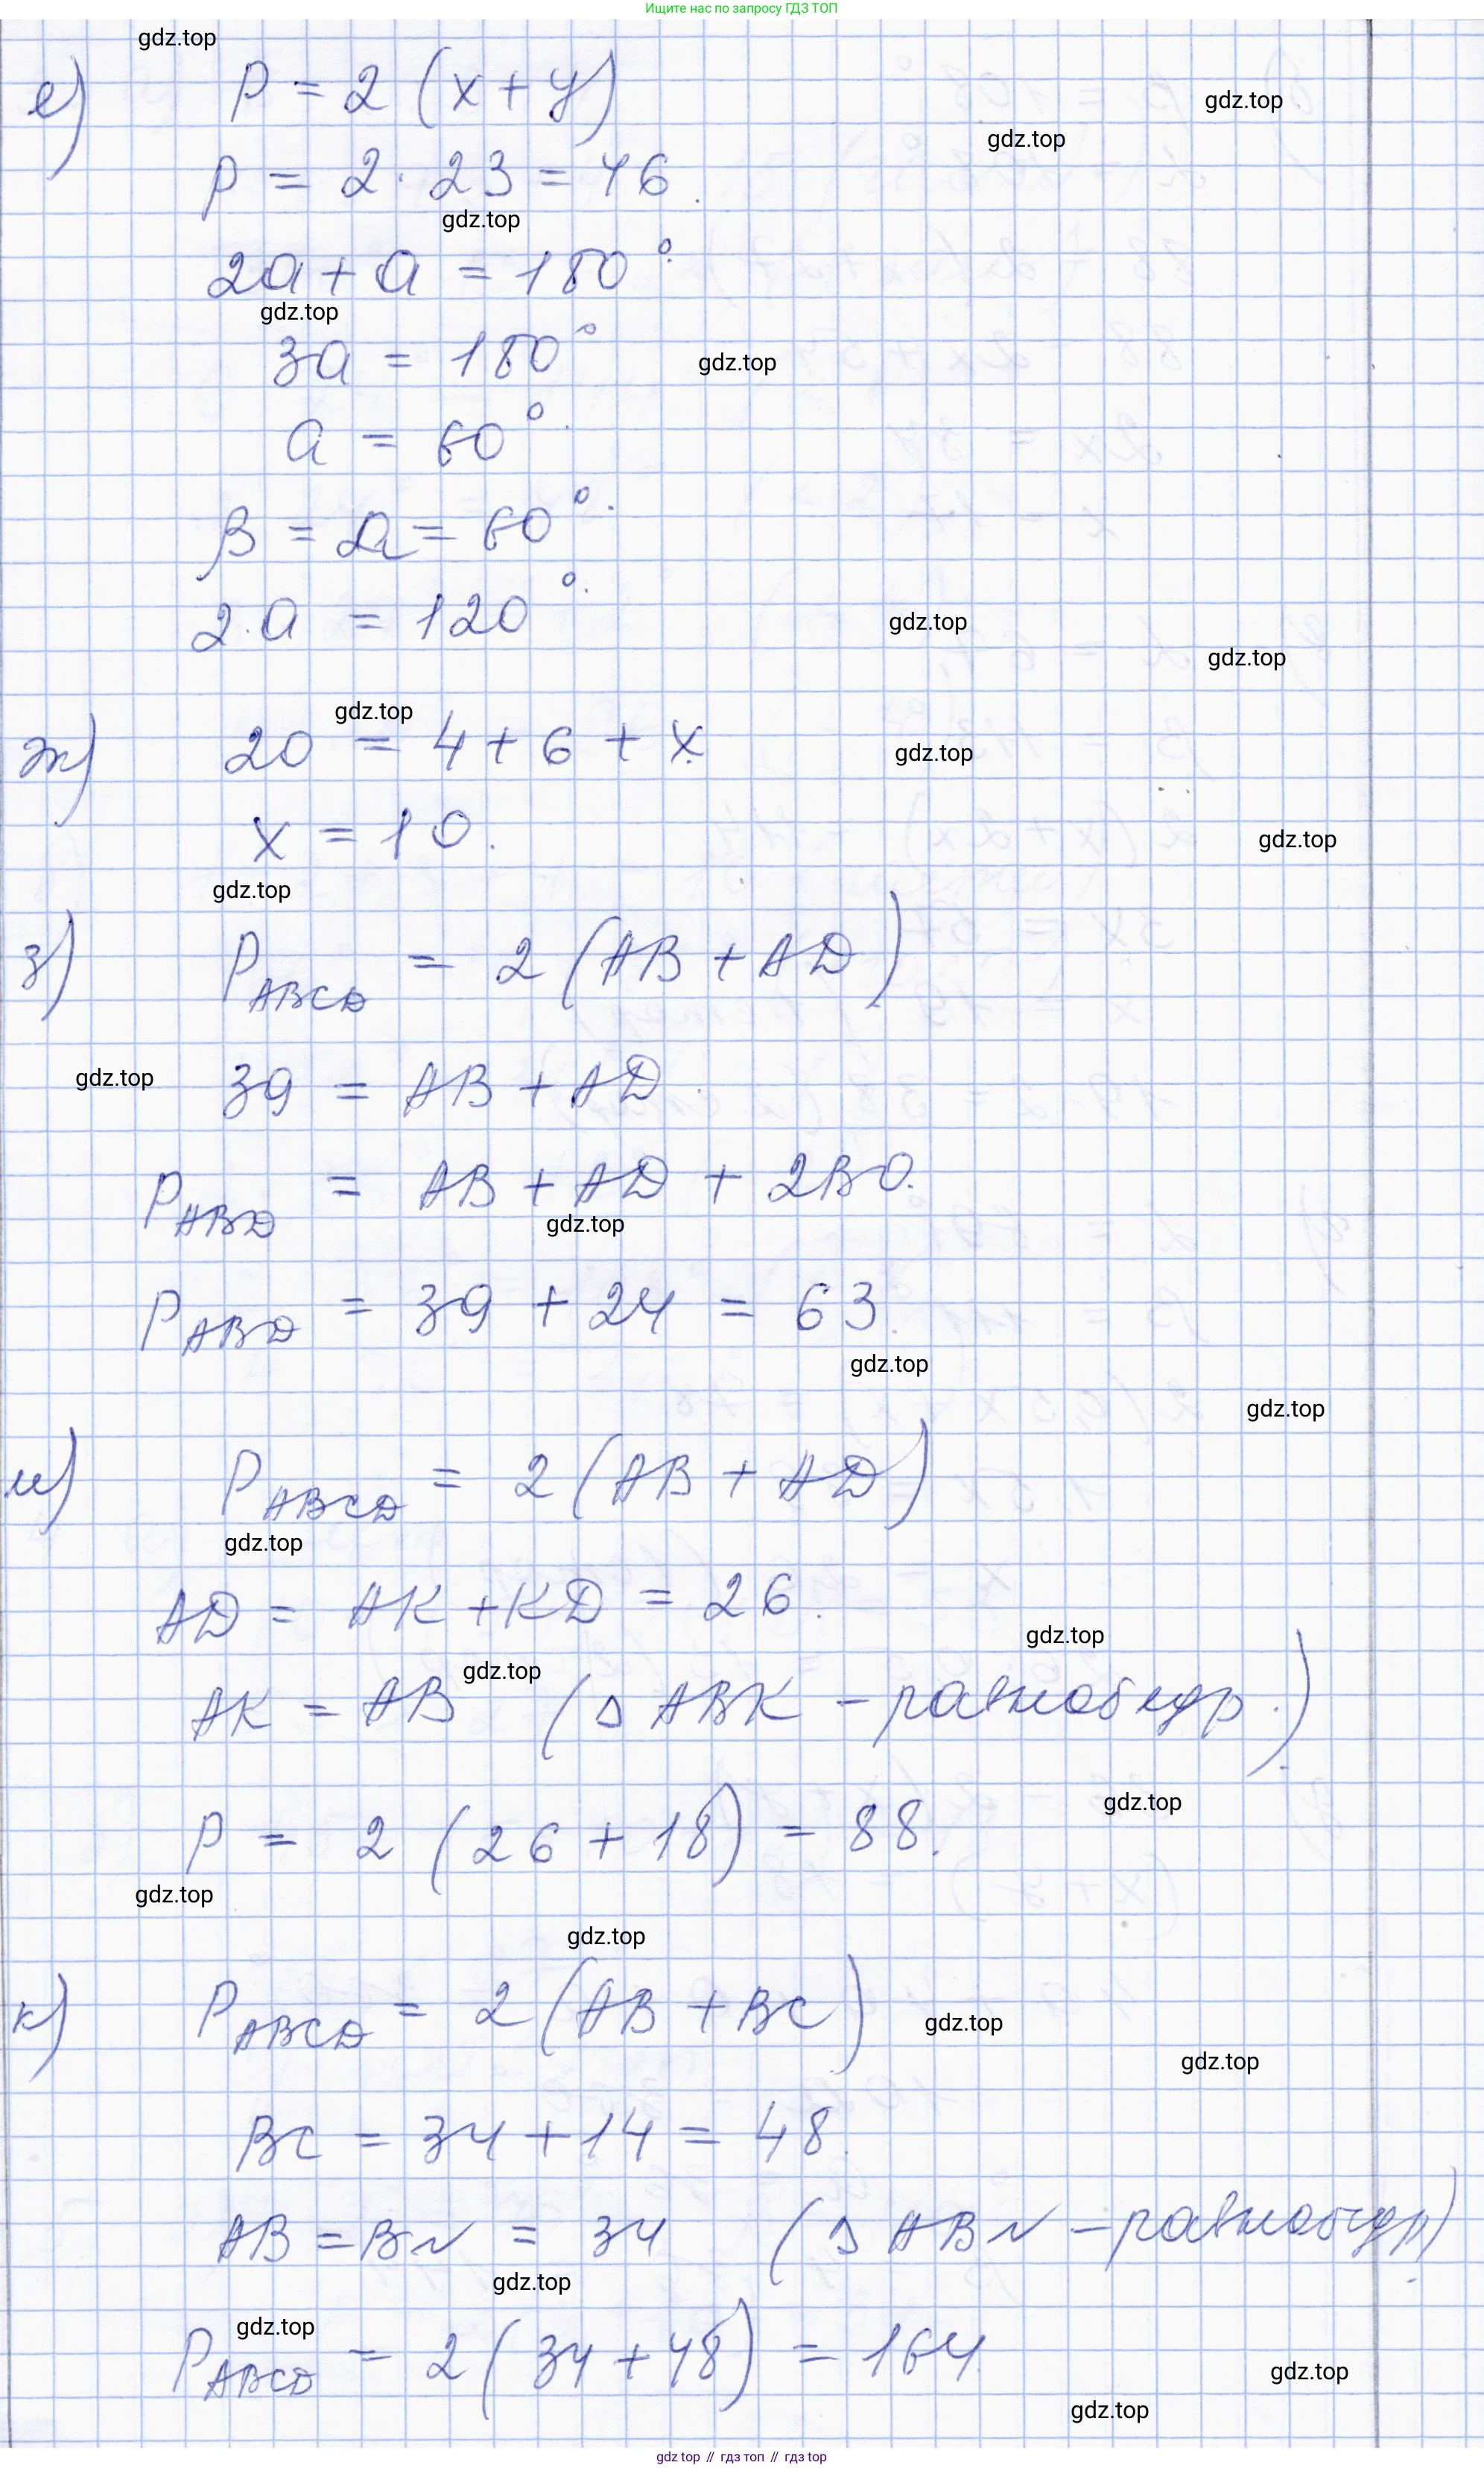 Ищите нас по запросу ГДЗ ТОП
gdz.top
е) P = 2 (x + y)
gdz.top
gdz.top
P = 2 · 23 = 46.
gdz.top
2a + a = 180°.
gdz.top
3a = 180°
gdz.top
a = 60°.
β = a = 60°.
2·a = 120°.
gdz.top
gdz.top
gdz.top
ж) 20 = 4 + 6 + x
gdz.top
x = 10.
gdz.top
gdz.top
з) P ABCD = 2 (AB + AD)
gdz.top
39 = AB + AD.
P ABD = AB + AD + 2BO.
gdz.top
P ABD = 39 + 24 = 63.
gdz.top
gdz.top
и) P ABCD = 2 (AB + AD)
gdz.top
AD = AK + KD = 26.
gdz.top
gdz.top
AK = AB (△ ABK – равнобедр.)
gdz.top
P = 2 (26 + 18) = 88.
gdz.top
gdz.top
к) P ABCD = 2 (AB + BC)
gdz.top
gdz.top
BC = 34 + 14 = 48.
AB = BN = 34 (△ ABN – равнобедр.)
gdz.top
gdz.top
P ABCD = 2 (34 + 48) = 164
gdz.top
gdz.top
gdz top // гдз топ // гдз top